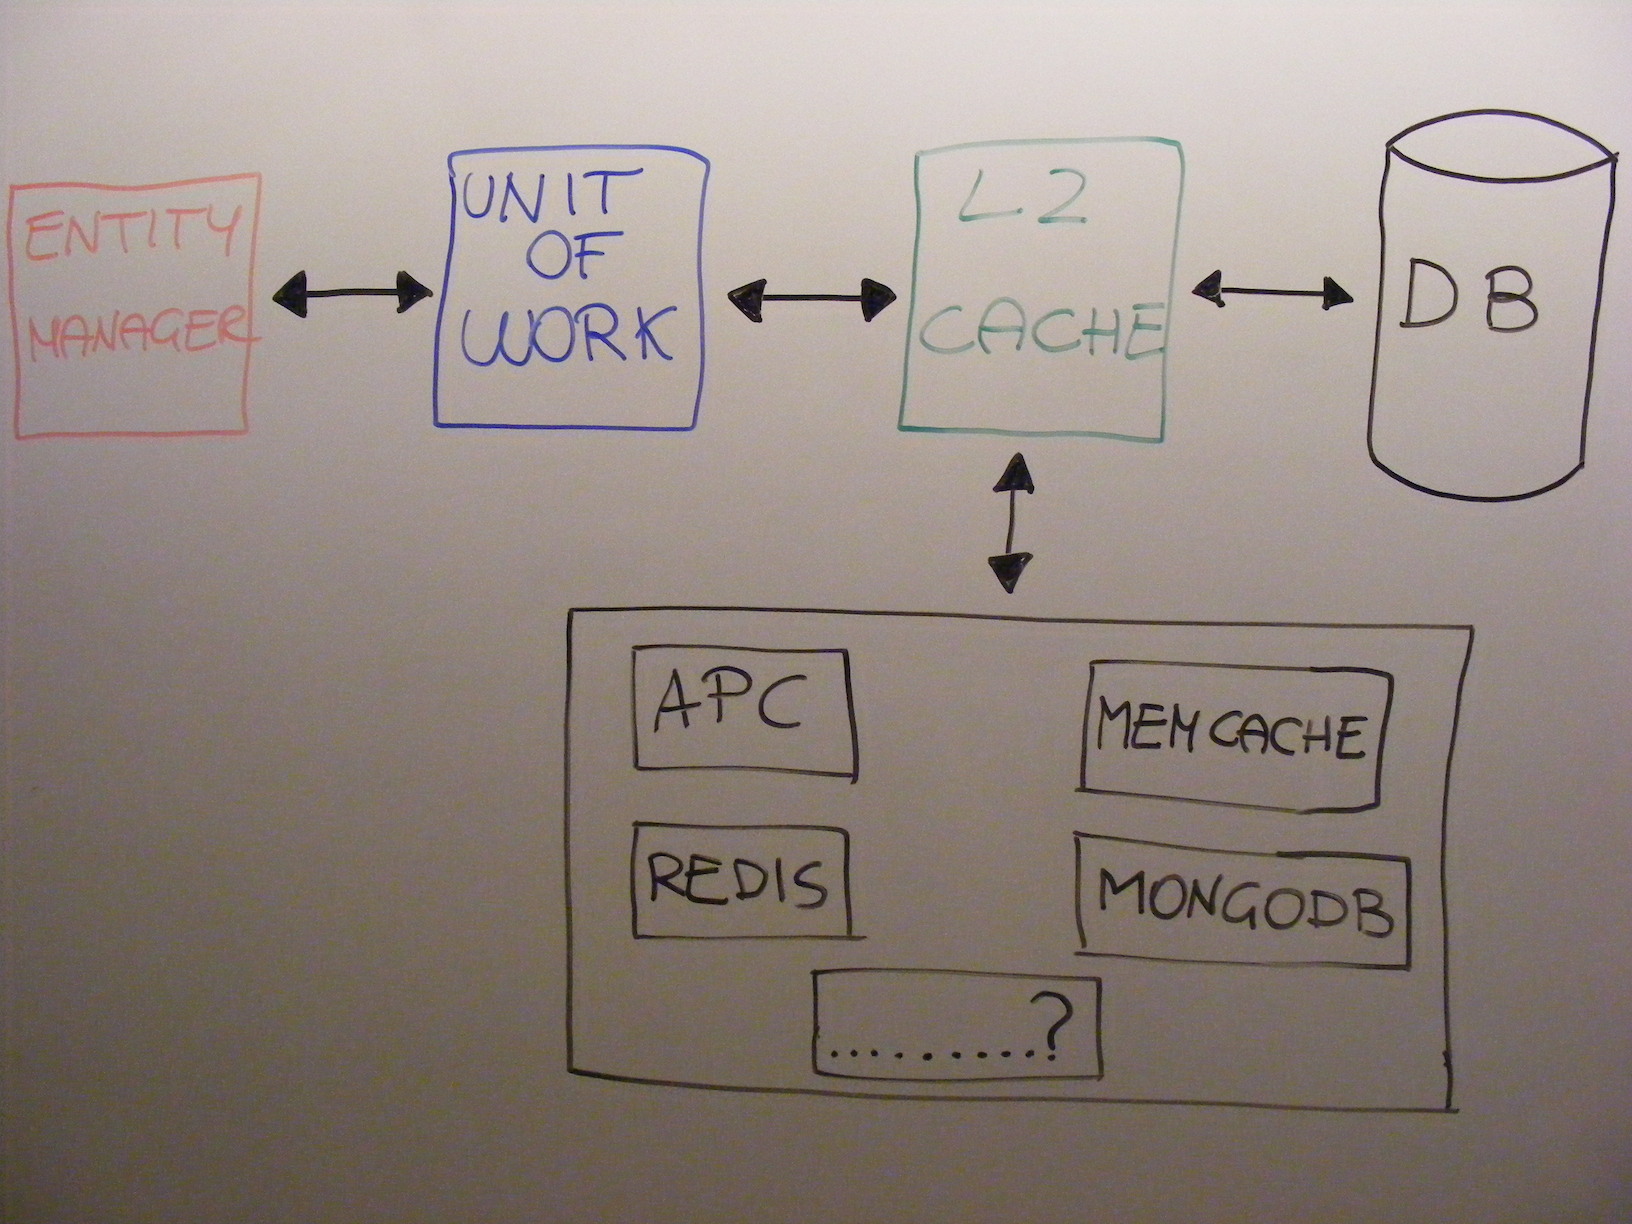 ENTITY
MANAGER
UNIT
OF
WORK
L2
CACHE
DB
APC
MEMCACHE
REDIS
MONGODB
..........?